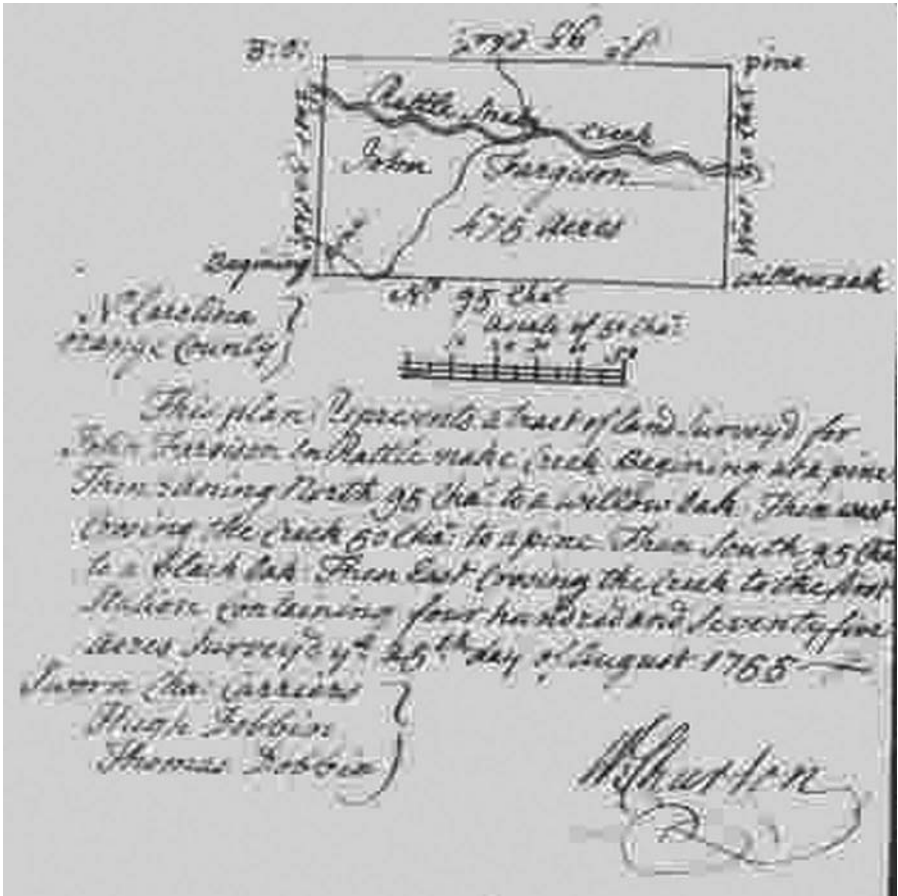 B:O:
So 95 Cha:
pine
Rattle Snake Creek
John Fargison
475 Acres
East 50 Cha:
West 50 Cha:
Begining
willow oak
No. 95 Cha:
No Carolina
orange County
a Scale of 50 Cha:
10 20 30 40 50
This plan Represents a tract of land Survey'd for
John Fargison on Rattle snake Creek Begining at a pine
Then runing North 95 Cha: to a willow Oak Then west
Crosing the Creek 50 Cha: to a pine Then South 95 Cha:
to a black Oak Then East Crosing the Creek to the first
Station Containing four hundred and Seventy five
acres Survey'd ye 25th day of August 1755
Sworn Cha: Carriers
Hugh Dobbin
Thomas Dobbin
W Churton